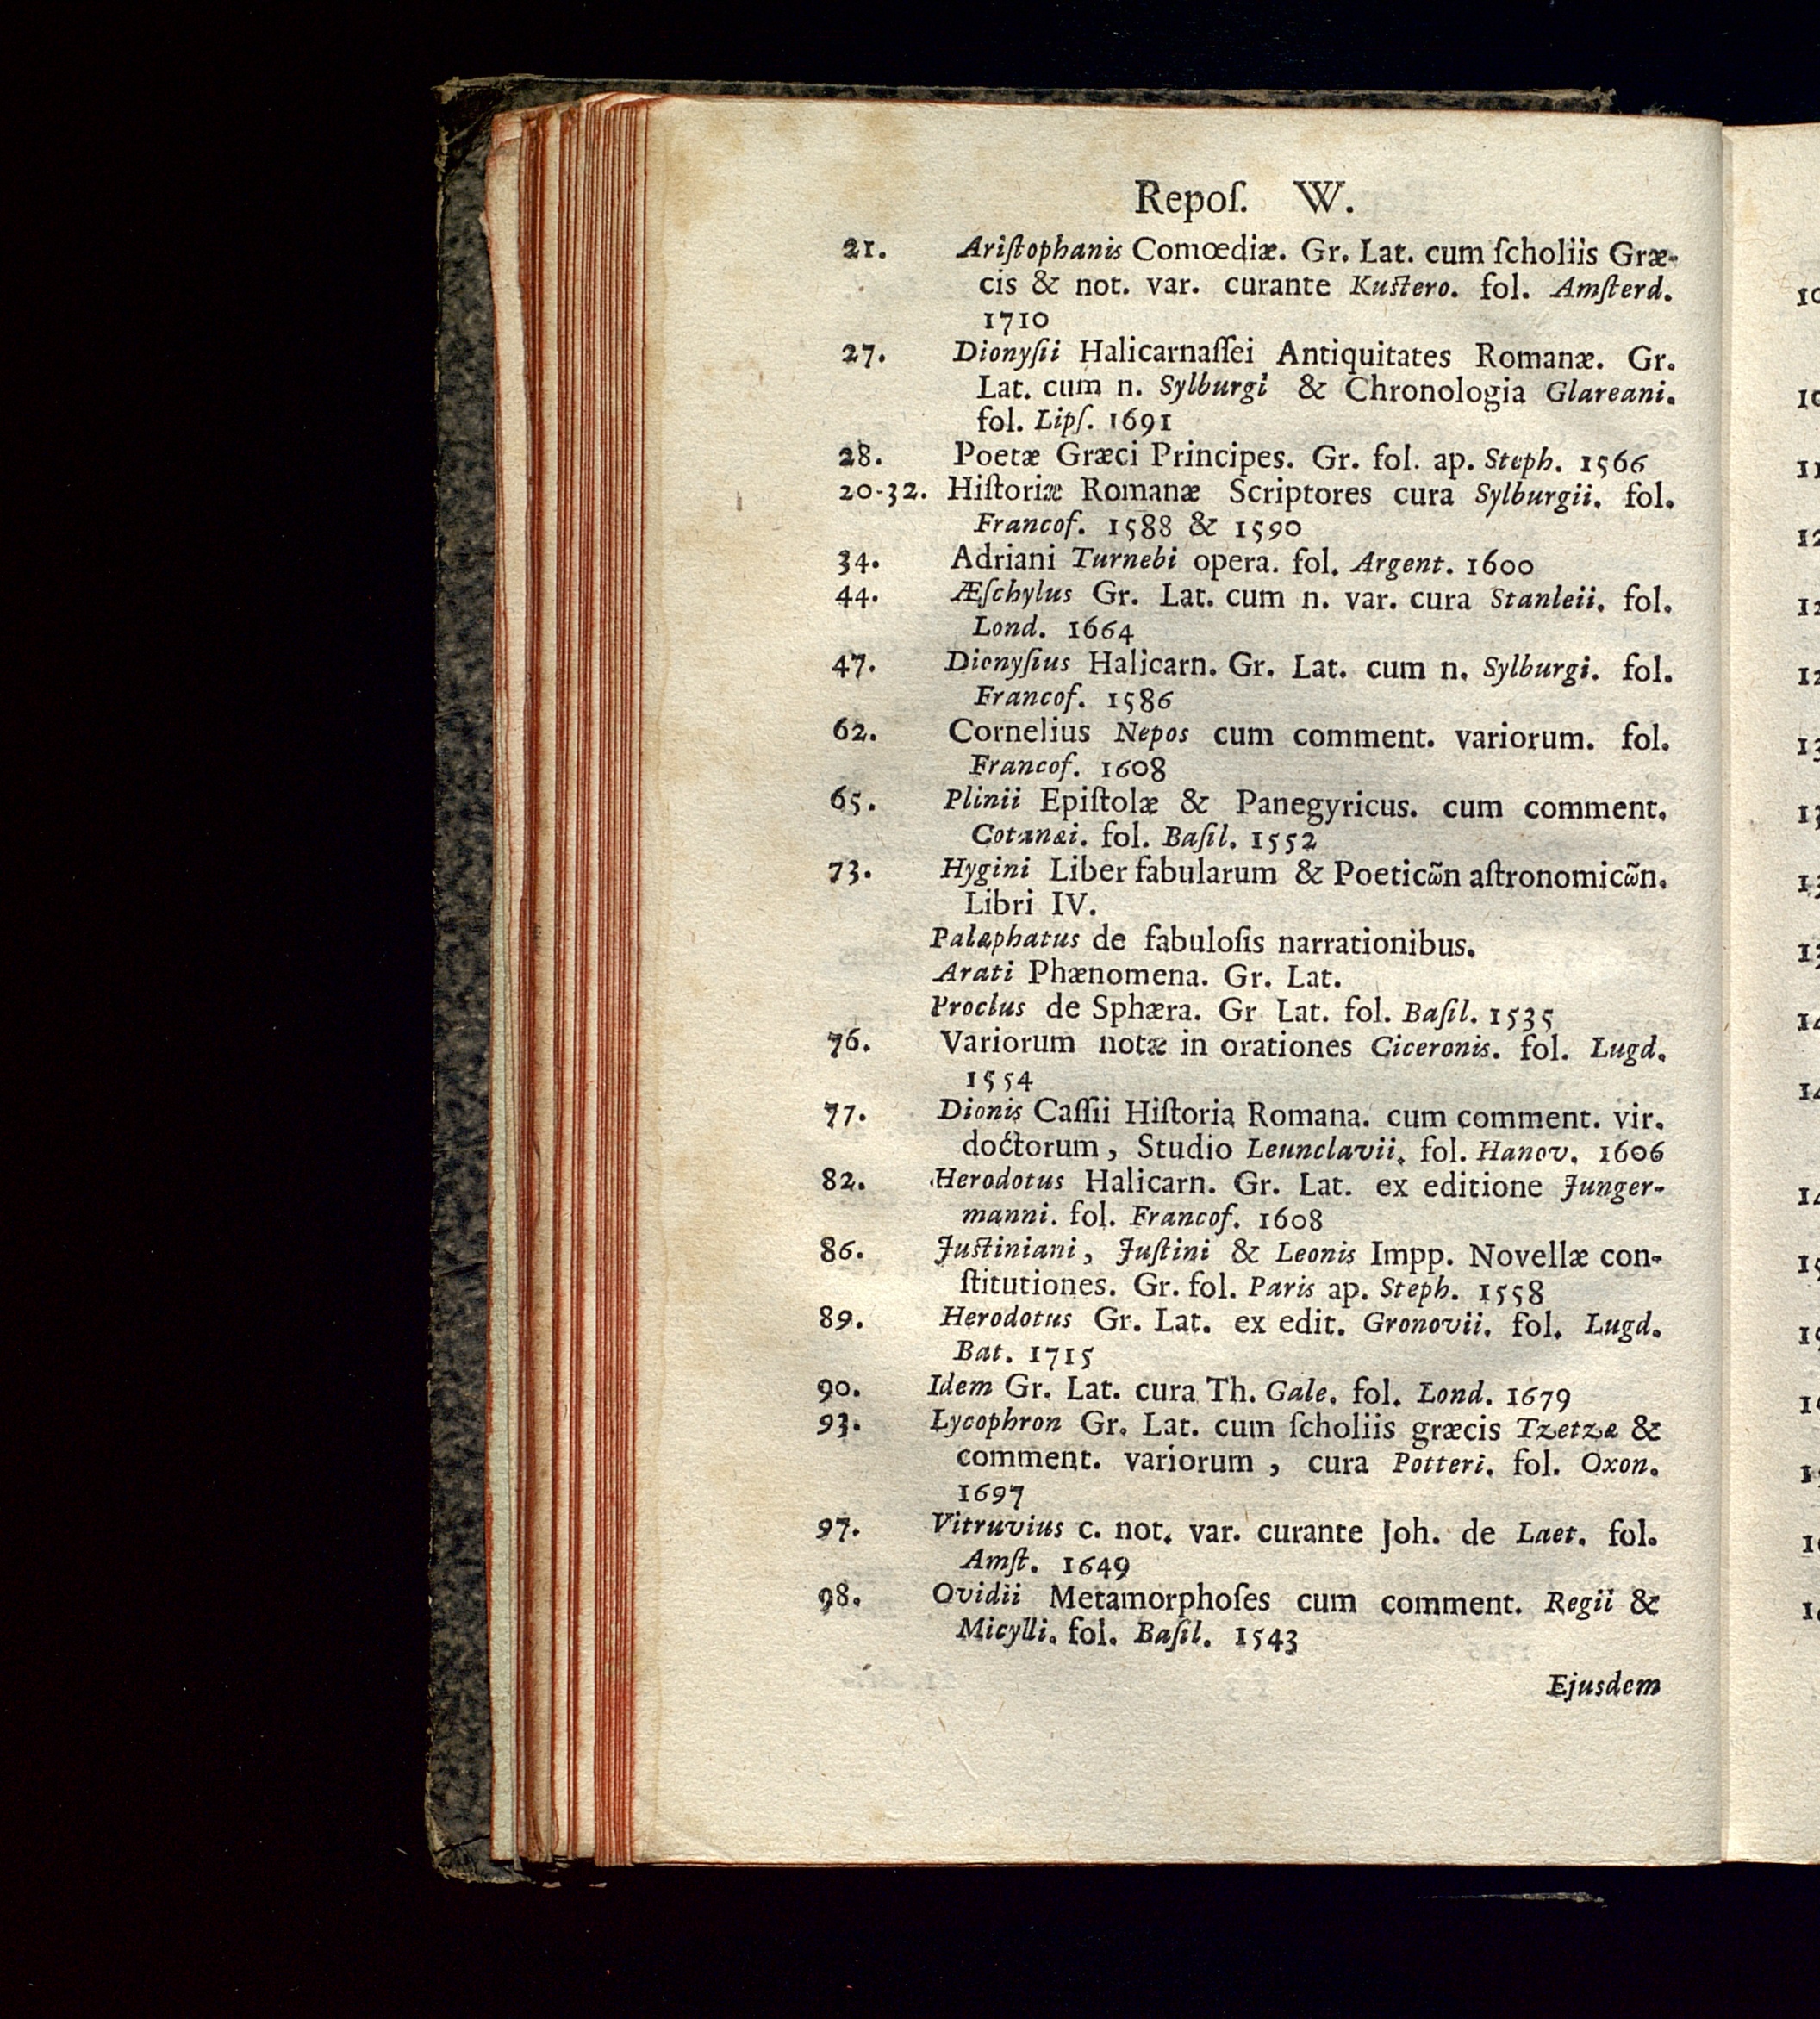 Repoſ. W.
21. Ariſtophanis Comœdiæ. Gr. Lat. cum ſcholiis Græ-
cis & not. var. curante Kuſtero. fol. Amſterd.
1710
27. Dionyſii Halicarnaſſei Antiquitates Romanæ. Gr.
Lat. cum n. Sylburgi & Chronologia Glareani.
fol. Lipſ. 1691
28. Poetæ Græci Principes. Gr. fol. ap. Steph. 1566
20-32. Hiſtoriæ Romanæ Scriptores cura Sylburgii. fol.
Francof. 1588 & 1590
34. Adriani Turnebi opera. fol. Argent. 1600
44. Æſchylus Gr. Lat. cum n. var. cura Stanleii. fol.
Lond. 1664
47. Dionyſius Halicarn. Gr. Lat. cum n. Sylburgi. fol.
Francof. 1586
62. Cornelius Nepos cum comment. variorum. fol.
Francof. 1608
65. Plinii Epiſtolæ & Panegyricus. cum comment.
Cotanæi. fol. Baſil. 1552
73. Hygini Liber fabularum & Poeticω̃n aſtronomicω̃n.
Libri IV.
Palæphatus de fabuloſis narrationibus.
Arati Phænomena. Gr. Lat.
Proclus de Sphæra. Gr Lat. fol. Baſil. 1535
76. Variorum notæ in orationes Ciceronis. fol. Lugd.
1554
77. Dionis Caſſii Hiſtoria Romana. cum comment. vir.
doctorum, Studio Leunclavii. fol. Hanov. 1606
82. Herodotus Halicarn. Gr. Lat. ex editione Junger-
manni. fol. Francof. 1608
86. Juſtiniani, Juſtini & Leonis Impp. Novellæ con-
ſtitutiones. Gr. fol. Paris ap. Steph. 1558
89. Herodotus Gr. Lat. ex edit. Gronovii. fol. Lugd.
Bat. 1715
90. Idem Gr. Lat. cura Th. Gale. fol. Lond. 1679
93. Lycophron Gr. Lat. cum ſcholiis græcis Tzetzæ &
comment. variorum, cura Potteri. fol. Oxon.
1697
97. Vitruvius c. not. var. curante Joh. de Laet. fol.
Amſt. 1649
98. Ovidii Metamorphoſes cum comment. Regii &
Micylli. fol. Baſil. 1543
Ejusdem